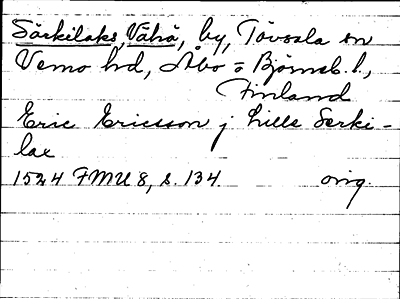 Särkilaks, Vähä, by, Tövsala sn
Vemo hd, Åbo o Björneb. l.,
Finland
Eric Ericsson j Lille Serki-
lax
1524 FMU 8, s. 134. orig.